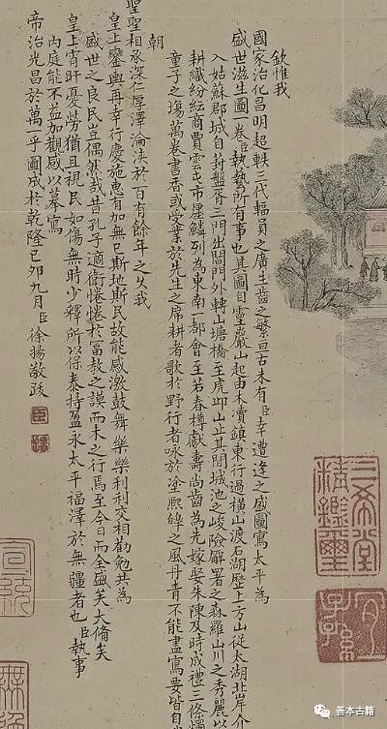 欽惟我
國家治化昌明超軼三代輻員之廣生齒之繁亘古未有臣幸遭逢之盛圖寫太平為
盛世滋生圖一卷臣執藝所有事也其圖自靈巖山起由木瀆鎮東行過橫山渡石湖歷上方山從太湖北岸介
入姑蘇郡城自葑盤胥三門出閶門外轉山塘橋至虎邱山止其間城池之峻險廨署之森羅山川之秀麗以
耕織紛紜商賈雲屯市廛鱗列為東南一都會至若春樽獻壽尚齒為先嫁娶朱陳及時成禮三條燭
童子之場萬卷書香或受業於先生之席耕者歌於野行者咏於塗熙皞之風丹青不能盡寫要皆自
朝
聖聖相承深仁厚澤淪浹於百有餘年之久我
皇上鑾輿再幸行慶施惠有加無已斯地斯民故能感激鼓舞樂樂利利交相勸勉共為
盛世之良民豈偶然哉昔孔子適衛惓惓於富教之謨而未之行焉至今日而全盛矣大備矣
皇上宵旰憂勞猶且視民如傷無時少釋所以保泰持盈永太平福澤於無疆者也臣執事
內庭能不益加觀感以摹寫
帝治光昌於萬一乎圖成於乾隆己卯九月臣徐揚敬跋
三希堂精鑑璽
宜子孫
善本古籍